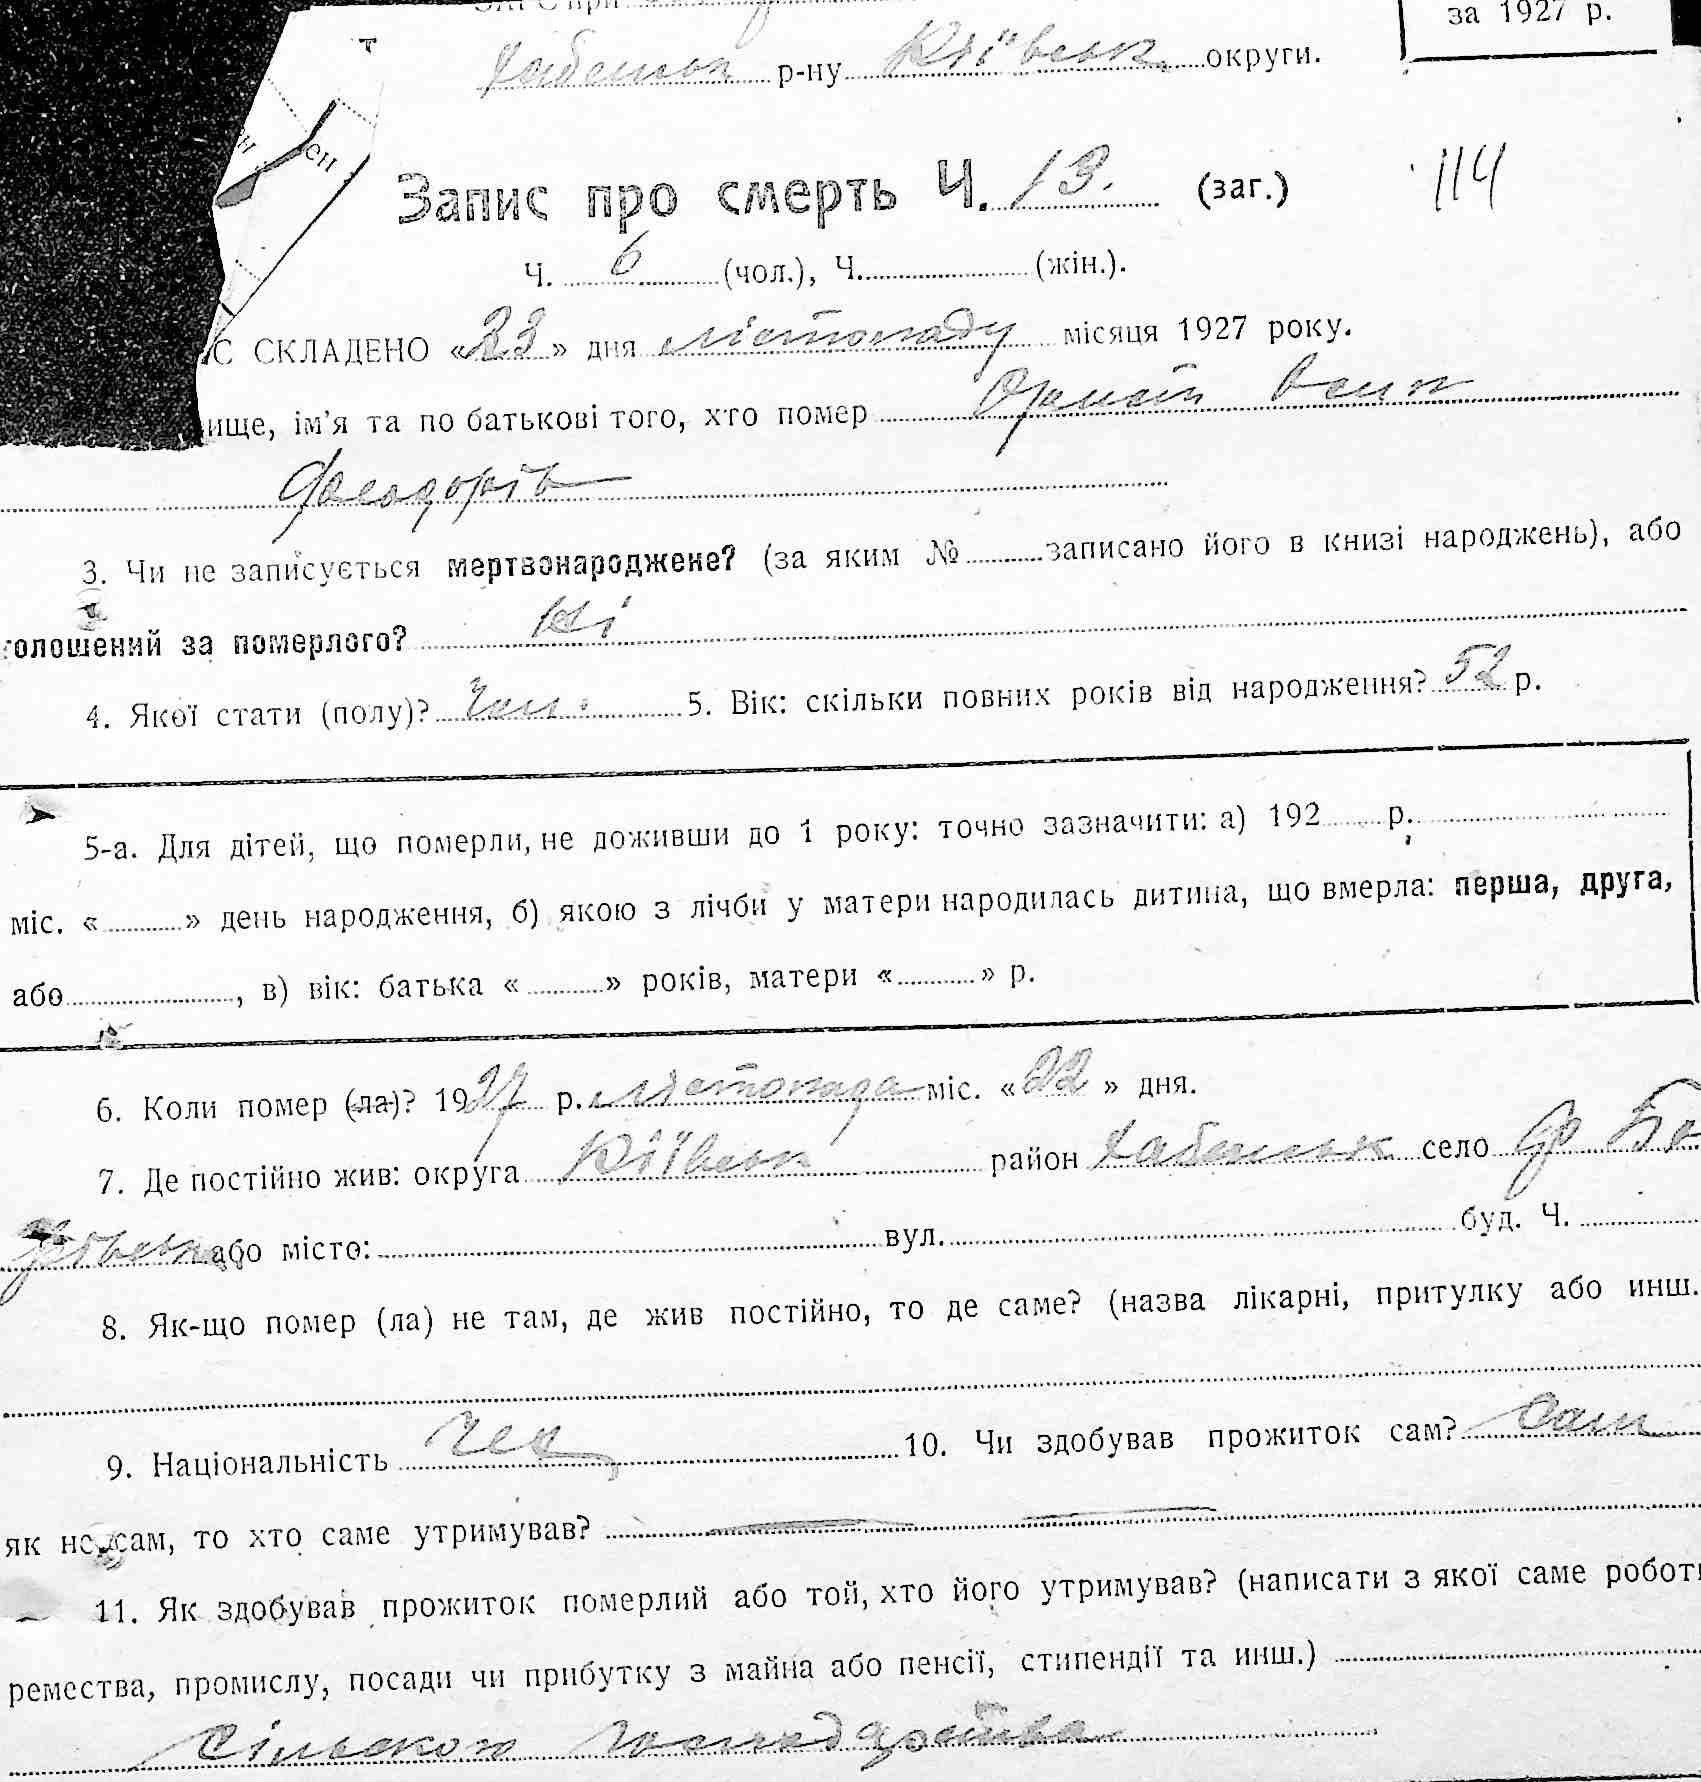 за 1927 р.
р-ну Київськ. округи.
Запис про смерть Ч. 13. (заг.) 114
Ч. 6 (чол.), Ч. (жін.).
С СКЛАДЕНО «23» дня лістопаду місяця 1927 року.
ище, ім'я та по батькові того, хто помер
Феодорів
3. Чи не записується мертвонароджене? (за яким № записано його в книзі народжень), або
голошений за померлого? Ні
4. Якої стати (полу)? чол. 5. Вік: скільки повних років від народження? 52 р.
5-а. Для дітей, що померли, не доживши до 1 року: точно зазначити: а) 192 р.
міс. « » день народження, б) якою з лічби у матери народилась дитина, що вмерла: перша, друга,
або , в) вік: батька « » років, матери « » р.
6. Коли помер (ла)? 1927 р. лістопада міс. «22» дня.
7. Де постійно жив: округа Київськ район село
або місто: вул. буд. Ч.
8. Як-що помер (ла) не там, де жив постійно, то де саме? (назва лікарні, притулку або инш.
9. Національність чех 10. Чи здобував прожиток сам? Сам
як не сам, то хто саме утримував?
11. Як здобував прожиток померлий або той, хто його утримував? (написати з якої саме роботи
ремества, промислу, посади чи прибутку з майна або пенсії, стипендії та инш.)
Сільского господарства